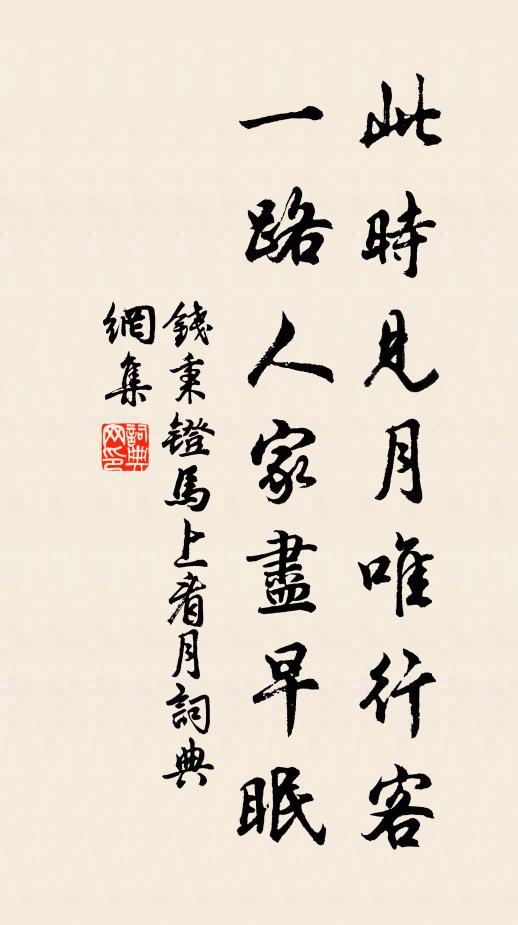 此時見月唯行客
一路人家盡早眠
錢秉鐙馬上看月詞典
網集
詞典
网印